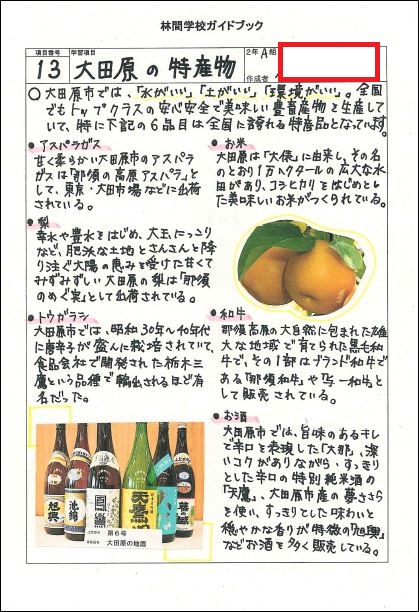 林間学校ガイドブック
項目番号 学習項目 2年A組
13 大田原の特産物 作成者
○大田原市では、「水がいい」「土がいい」「環境がいい」。全国
でもトップクラスの安心安全で美味しい農畜産物を生産して
いて、特に下記の6品目は全国に誇れる特産品となっています。
●アスパラガス
甘く柔らかい大田原市のアスパラ
ガスは「那須の高原アスパラ」と
して、東京・大田市場などに出荷
されている。
●お米
大田原は「大俵」に由来し、その名
のとおり1万ヘクタールの広大な水
田があり、コシヒカリをはじめとし
た美味しいお米がつくられている。
●梨
幸水や豊水をはじめ、大玉、にっこり
など、肥沃な土地とさんさんと降
り注ぐ太陽の恵みを受けた甘くて
みずみずしい大田原の梨は「那須
のめぐ実」として出荷されている。
●トウガラシ
大田原市では、昭和30年~40年代
に唐辛子が盛んに栽培されていて、
食品会社で開発された栃木三
鷹という品種で輸出されるほど有
名だった。
●和牛
那須高原の大自然に包まれた雄
大な地域で育てられた黒毛和
牛で、その1部はブランド和牛で
ある「那須和牛」や「与一和牛」と
して販売されている。
●お酒
大田原市では、旨味のあるキレ
で辛口を表現した「大那」、深
いコクがありながら、すっきり
とした辛口の特別純米酒の
「天鷹」、大田原市産の夢ささら
を使い、すっきりとした味わいと
穏やかな香りが特徴の「旭興」
などお酒を多く販売している。
旭興
池錦
鳳鸞
天鷹
第6号
大田原の地酒